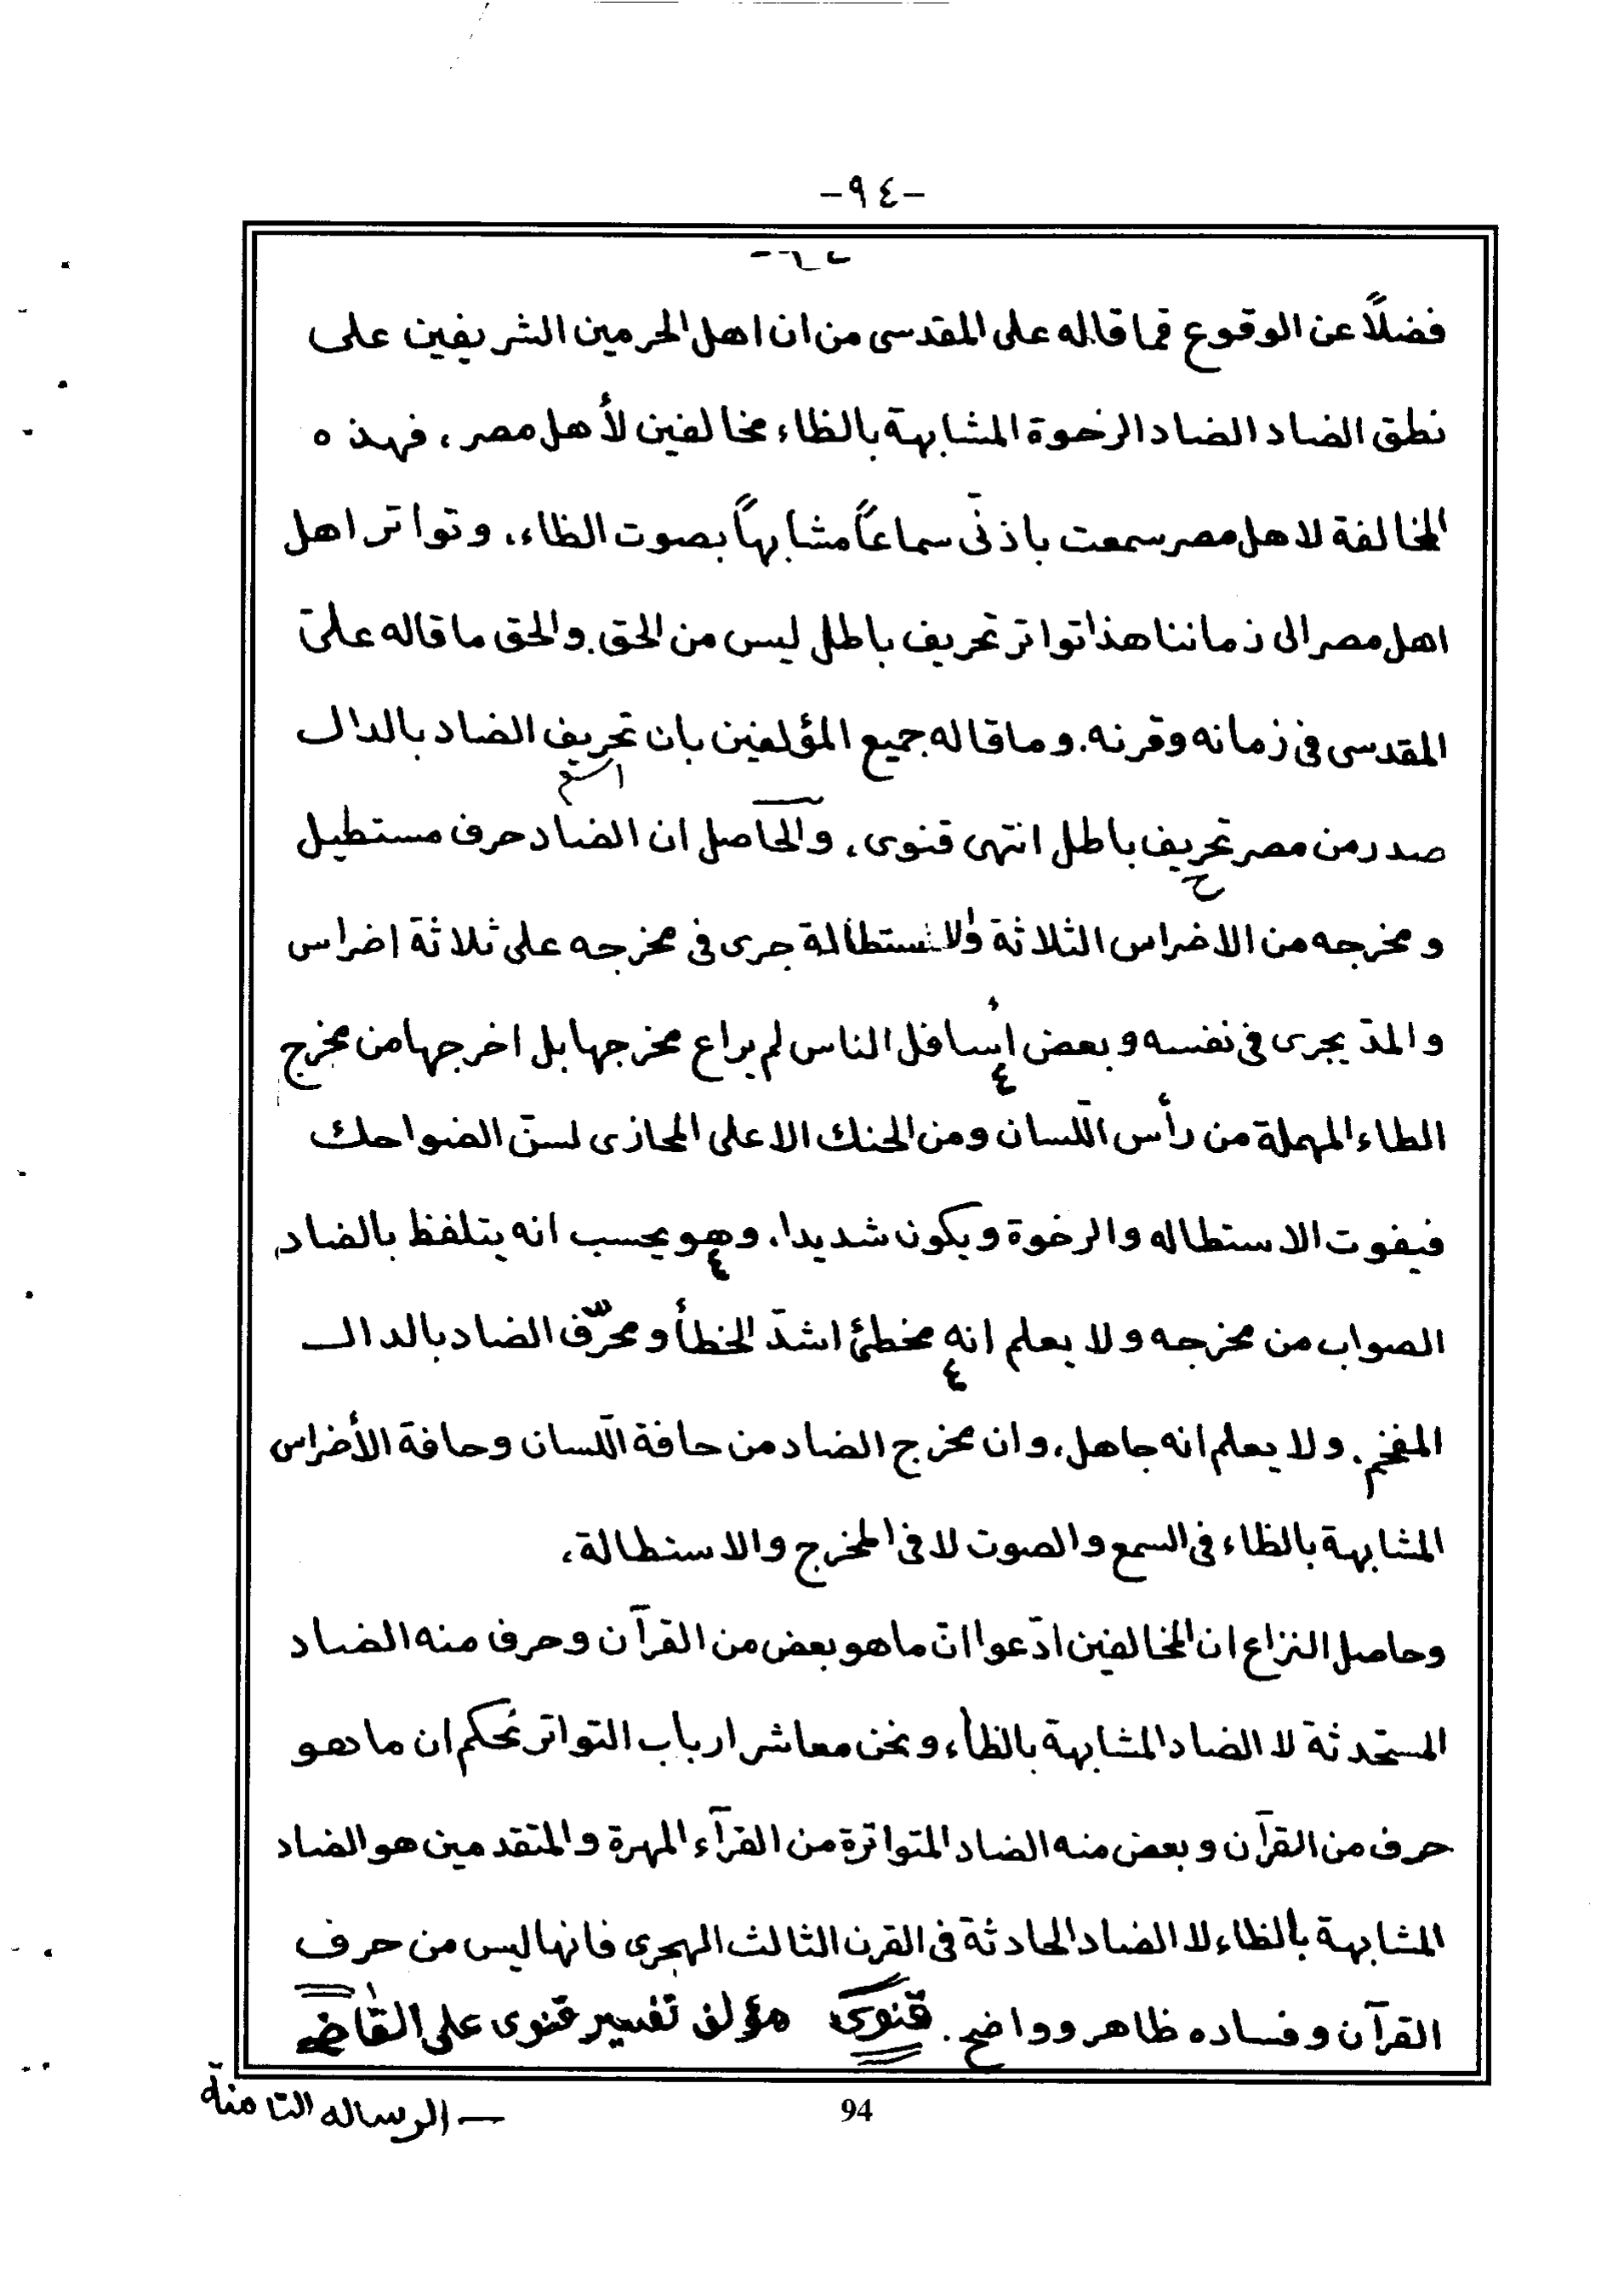 -٩٤-
فضلاً عن الوقوع فما قاله على المقدسى من ان اهل الحرمين الشريفين على
نطق الضاد الضاد الرخوة المشابهة بالظاء مخالفين لأهل مصر، فهذه
المخالفة لاهل مصر سمعت باذنى سماعاً مشابهاً بصوت الظاء. وتواتر اهل
اهل مصر الى زماننا هذا تواتر تحريف باطل ليس من الحق. والحق ما قاله علىّ
المقدسى فى زمانه وقرنه. وما قاله جميع المؤلفين بان تحريف الضاد بالدال
صدر من مصر تحريف باطل انتهى قنوى، والحاصل ان الضاد حرف مستطيل
و مخرجه من الاضراس الثلاثة والاستطالة جرى فى مخرجه على ثلاثة اضراس
والمدّ يجرى فى نفسه وبعض أسافل الناس لم يراع مخرجها بل اخرجها من مخرج
الطاء المهملة من رأس اللّسان ومن الحنك الاعلى المحازى لسنّ الضواحك
فيفوت الاستطاله والرخوة ويكون شديدا. وهو يحسب انه يتلفظ بالضاد
الصواب من مخرجه ولا يعلم انه مخطئ اشدّ الخطأ ومحرّف الضاد بالدال
المفخم. ولا يعلم انه جاهل، وان مخرج الضاد من حافة اللّسان وحافة الأضراس
المشابهة بالظاء فى السمع والصوت لا فى المخرج والاستطالة،
وحاصل النزاع ان المخالفين ادّعوا انّ ما هو بعض من القرآن وحرف منه الضاد
المستحدثة لا الضاد المشابهة بالظاء، ونحن معاشر ارباب التواتر نحكم ان ما هو
حرف من القرآن وبعض منه الضاد المتواترة من القرآء المهرة والمتقدمين هو الضاد
المشابهة بالظاء لا الضاد الحادثة فى القرن الثالث الهجرى فانها ليس من حرف
القرآن وفساده ظاهر وواضح. قنوى مؤلف تفسير قنوى على القاضى
94
— الرساله الثامنة